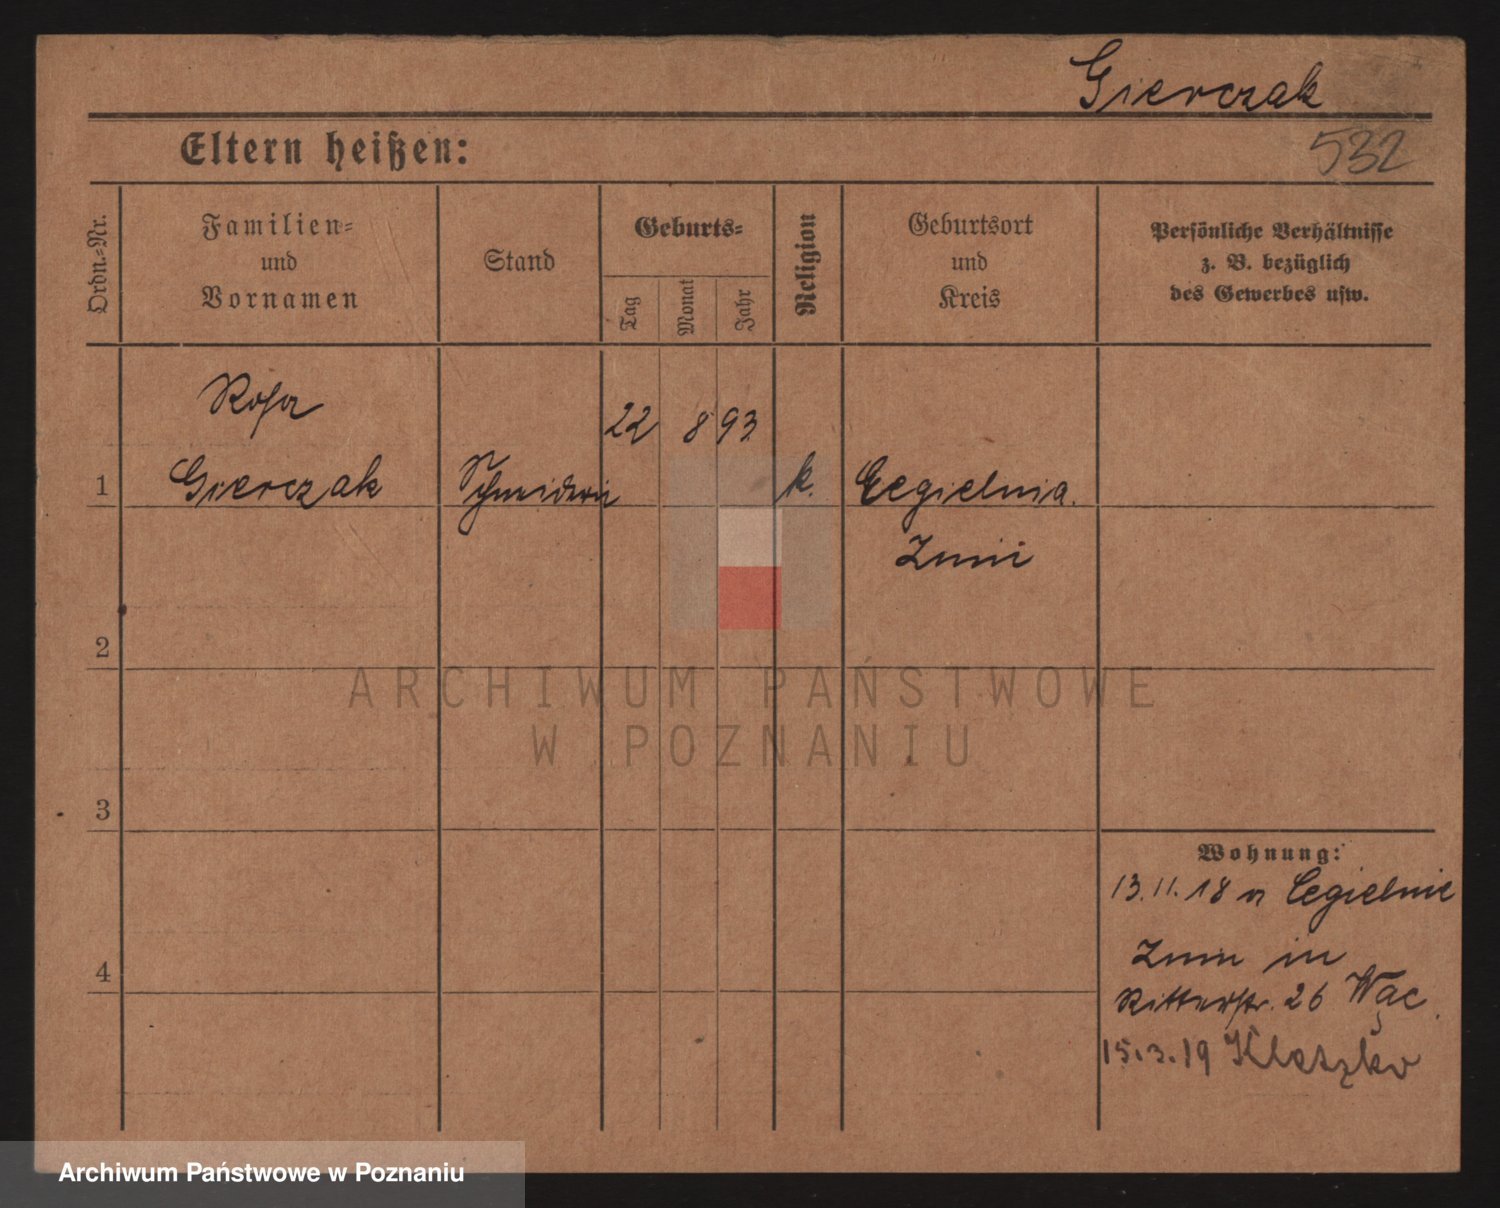 Gierczak
Eltern heißen:
532
Ordn.-Nr.
Familien-
und
Vornamen
Stand
Geburts-
Tag
Monat
Jahr
Religion
Geburtsort
und
Kreis
Persönliche Verhältnisse
z. B. bezüglich
des Gewerbes usw.
Rosa
22 8 93
1 Gierczak Schneiderin k. Cegielnia.
Znin
2
ARCHIWUM PAŃSTWOWE
W POZNANIU
3
Wohnung:
13.11.18 Cegielnie
4
Znin in
Ritterstr. 26 Wąc.
15.3.19 Kletzko
Archiwum Państwowe w Poznaniu